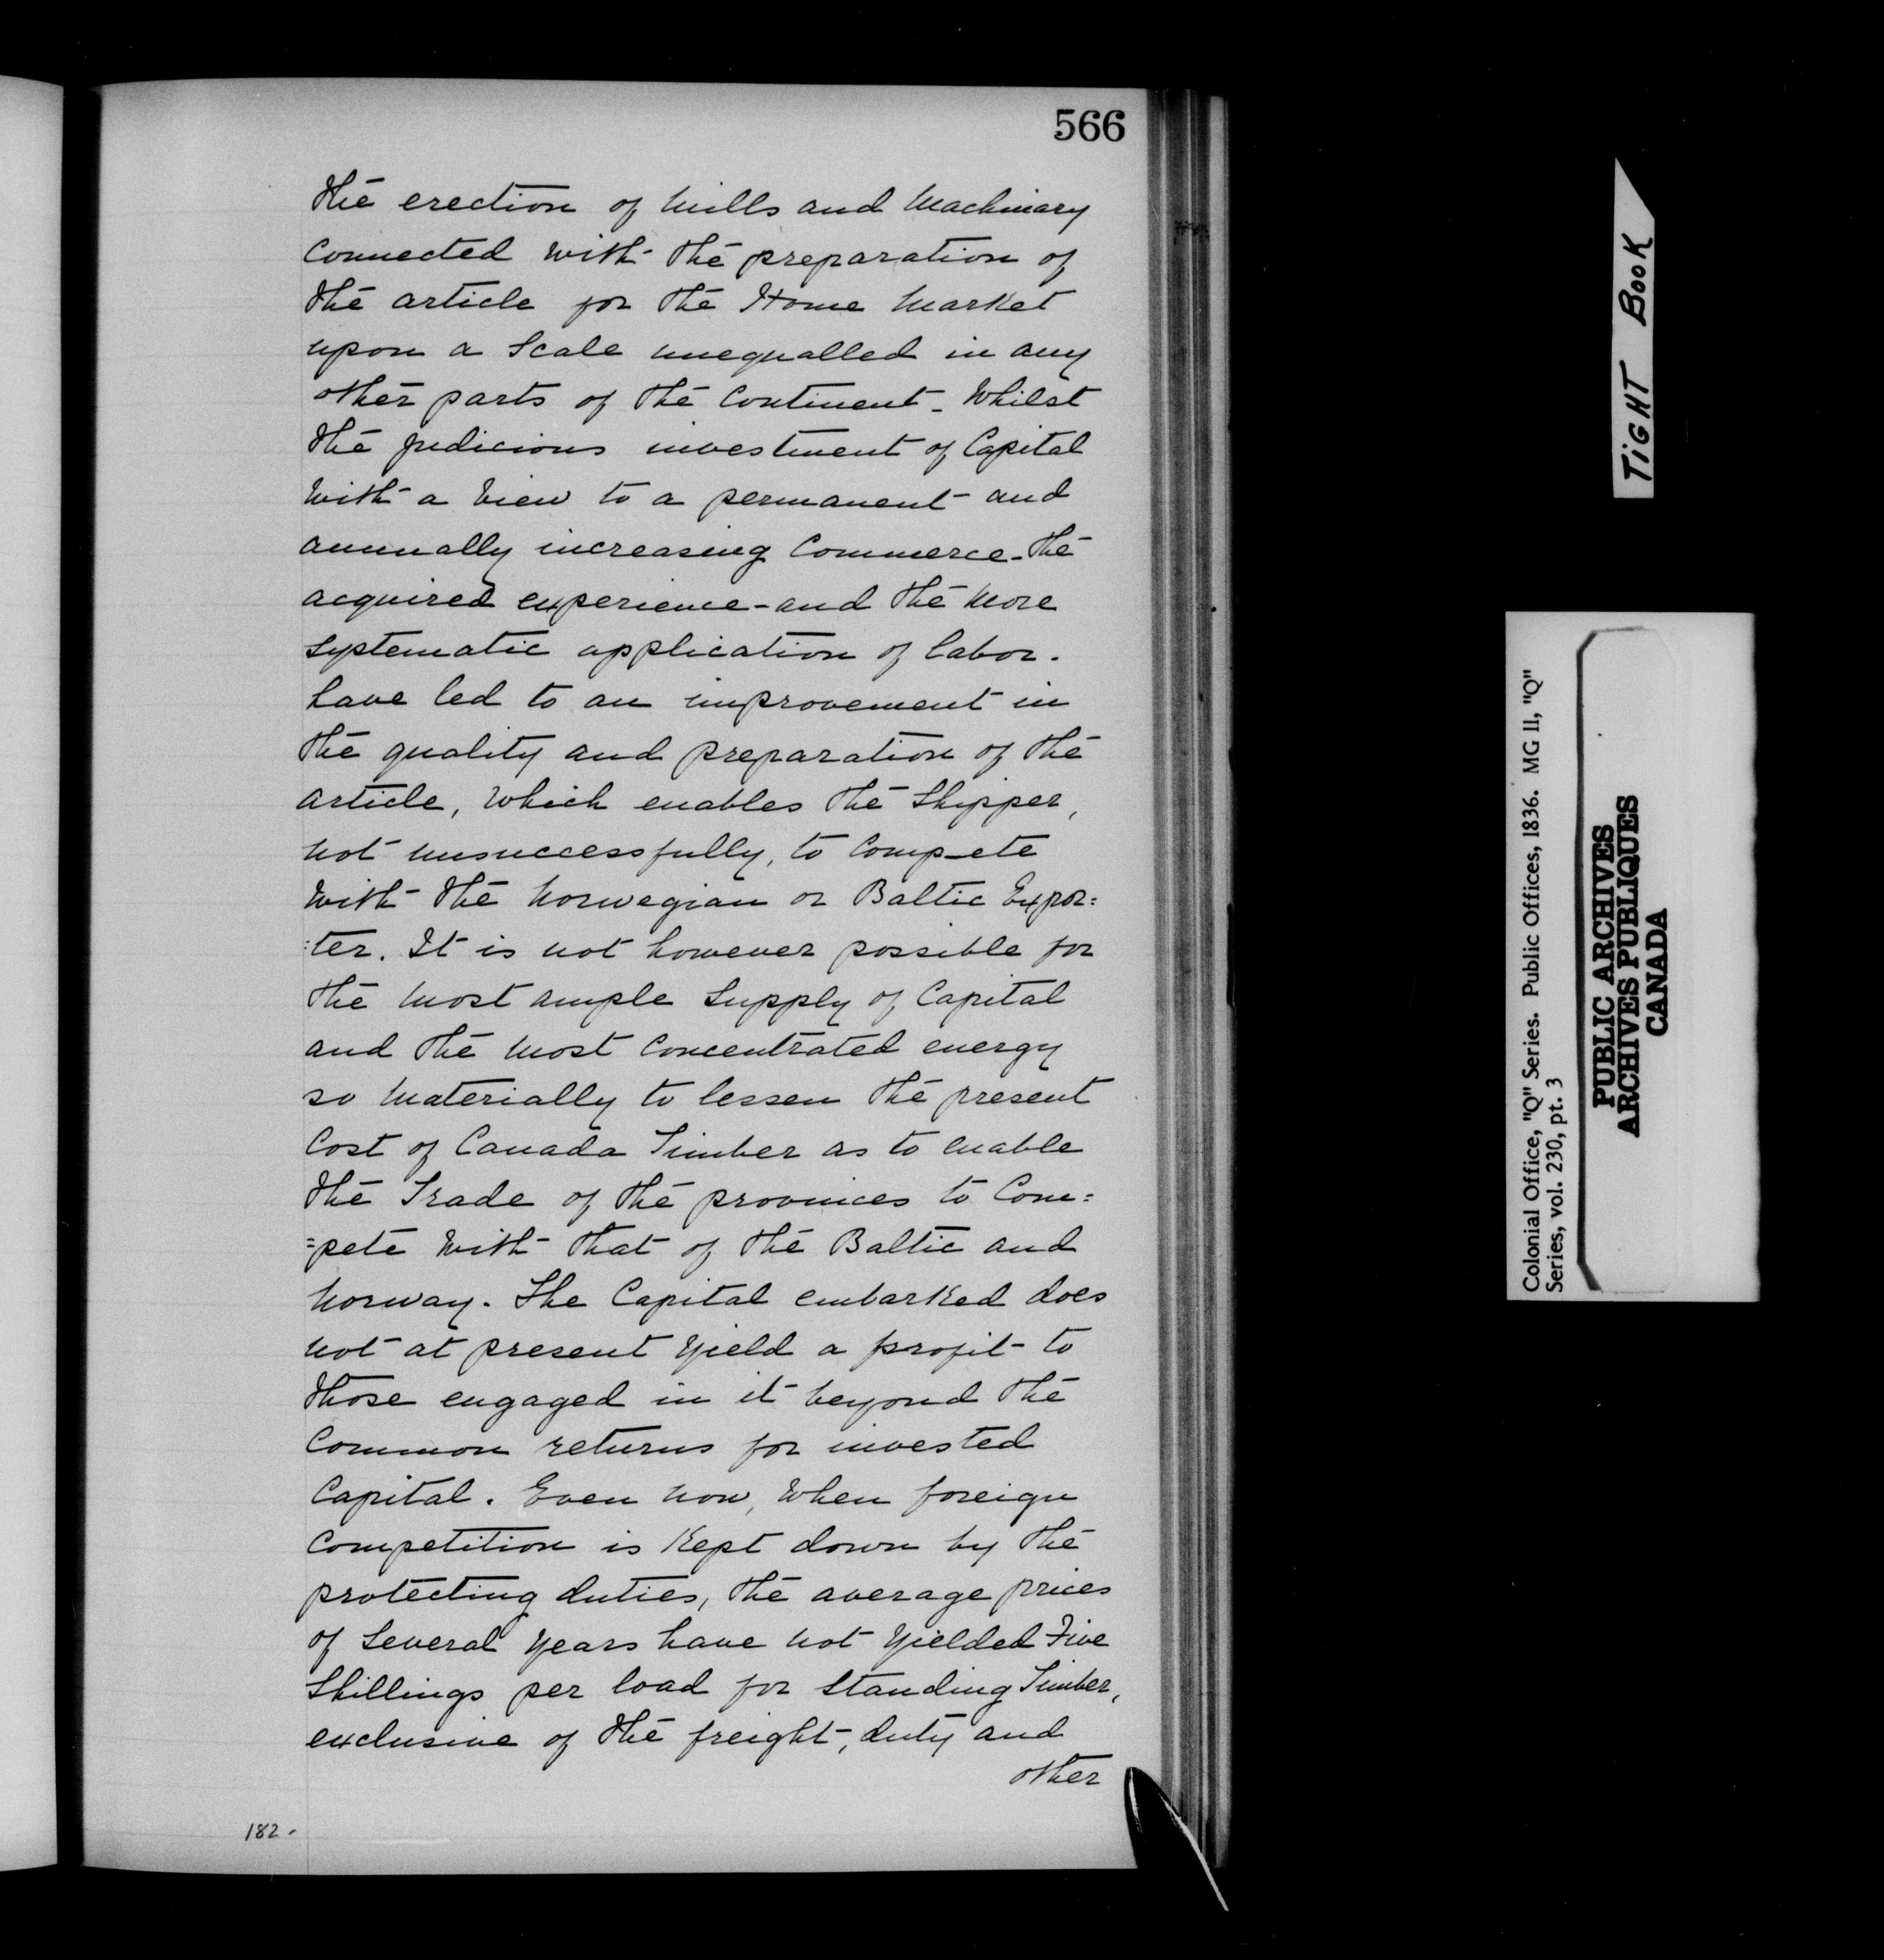 566
the erection of Mills and Machinary
Connected with the preparation of
the article for the Home Market
upon a Scale unequalled in any
other parts of the Continent - Whilst
the judicious investment of Capital
with a View to a permanent and
annually increasing Commerce - the
acquired experience - and the More
systematic application of labor.
have led to an improvement in
the quality and preparation of the
article, Which enables the Shipper,
not unsuccessfully, to Comp-ete
with the Norwegian or Baltic Expor:
:ter. It is not however possible for
the Most ample Supply of Capital
and the Most Concentrated energy
so Materially to lessen the present
Cost of Canada Timber as to enable
the Trade of the provinces to Com:
=pete With that of the Baltic and
Norway. The Capital embarked does
not at present Yield a profit to
those engaged in it beyond the
Common returns for invested
Capital. Even now, When foreign
Competition is Kept down by the
protecting duties, the average prices
of Several Years have not Yielded Five
Shillings per load for Standing Timber,
exclusive of the freight, duty and
other
182.
TiGHT BooK
Colonial Office, "Q" Series. Public Offices, 1836. MG 11, "Q"
Series, vol. 230, pt. 3
PUBLIC ARCHIVES
ARCHIVES PUBLIQUES
CANADA